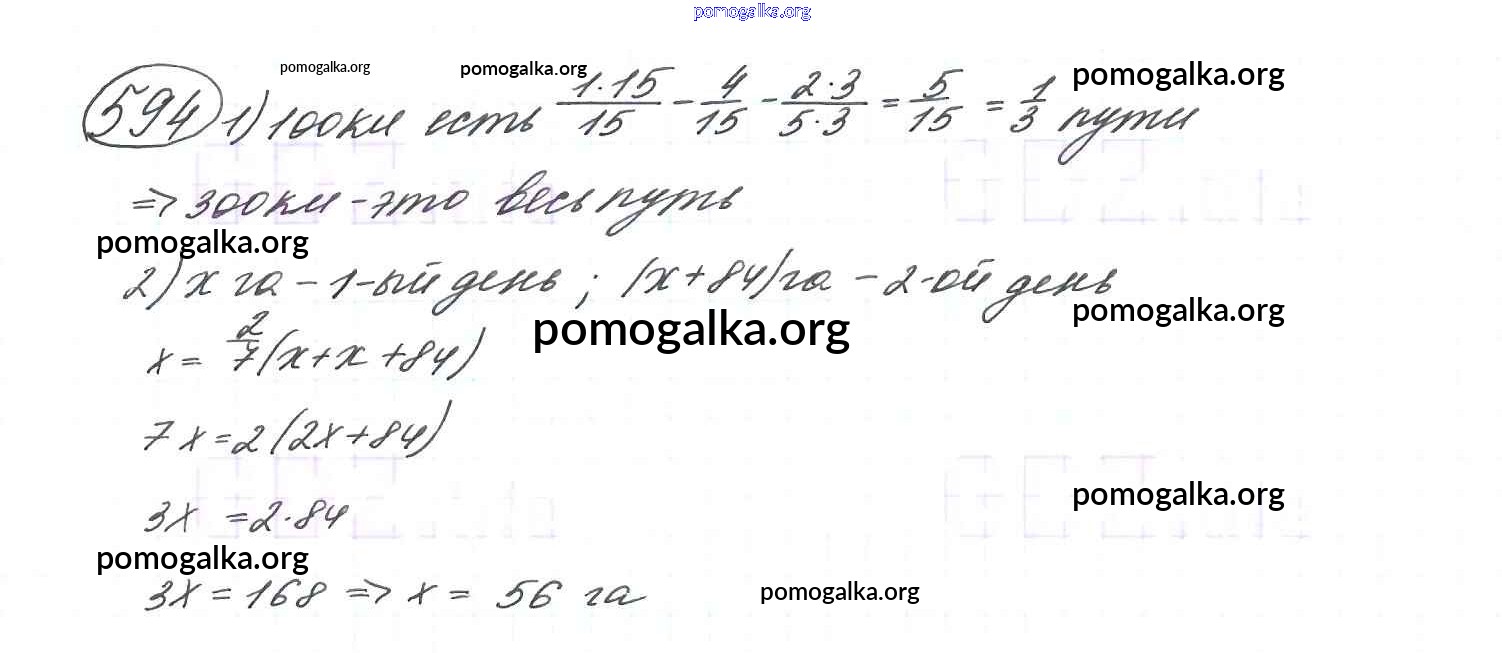 pomogalka.org
pomogalka.org pomogalka.org pomogalka.org
594 1) 100км есть 1·15/15 - 4/15 - 2·3/5·3 = 5/15 = 1/3 пути
=> 300км - это весь путь
pomogalka.org
2) x га - 1-ый день ; (x+84)га - 2-ой день
pomogalka.org
pomogalka.org
x = 2/7(x+x+84)
7x=2(2x+84)
pomogalka.org
3x =2·84
pomogalka.org
3x=168 => x = 56 га
pomogalka.org